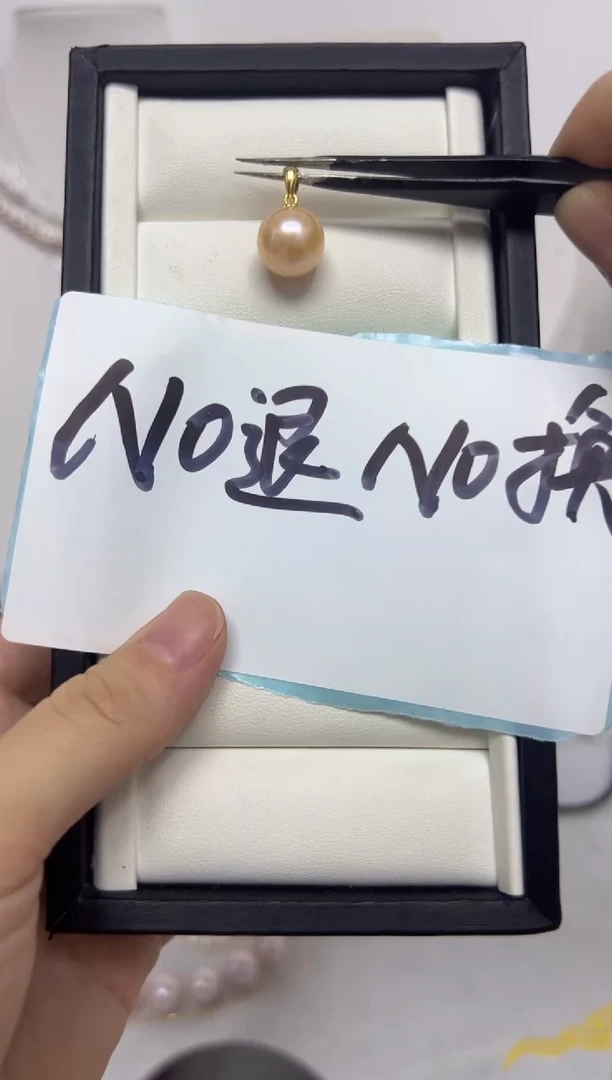 NO退 NO换